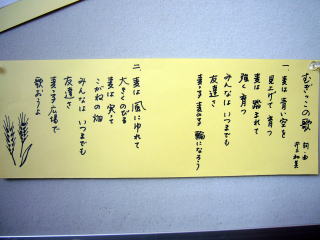 むぎっこの歌
詞・曲
一、麦は青い空を
見上げて育つ
麦は踏まれて
強く育つ
みんなは いつまでも
友達さ
麦っ子 麦の子 輪になろう
二、麦は風にゆれて
大きくのびる
麦は実って
こがねの畑
みんなは いつまでも
友達さ
麦っ子広場で
歌おうよ